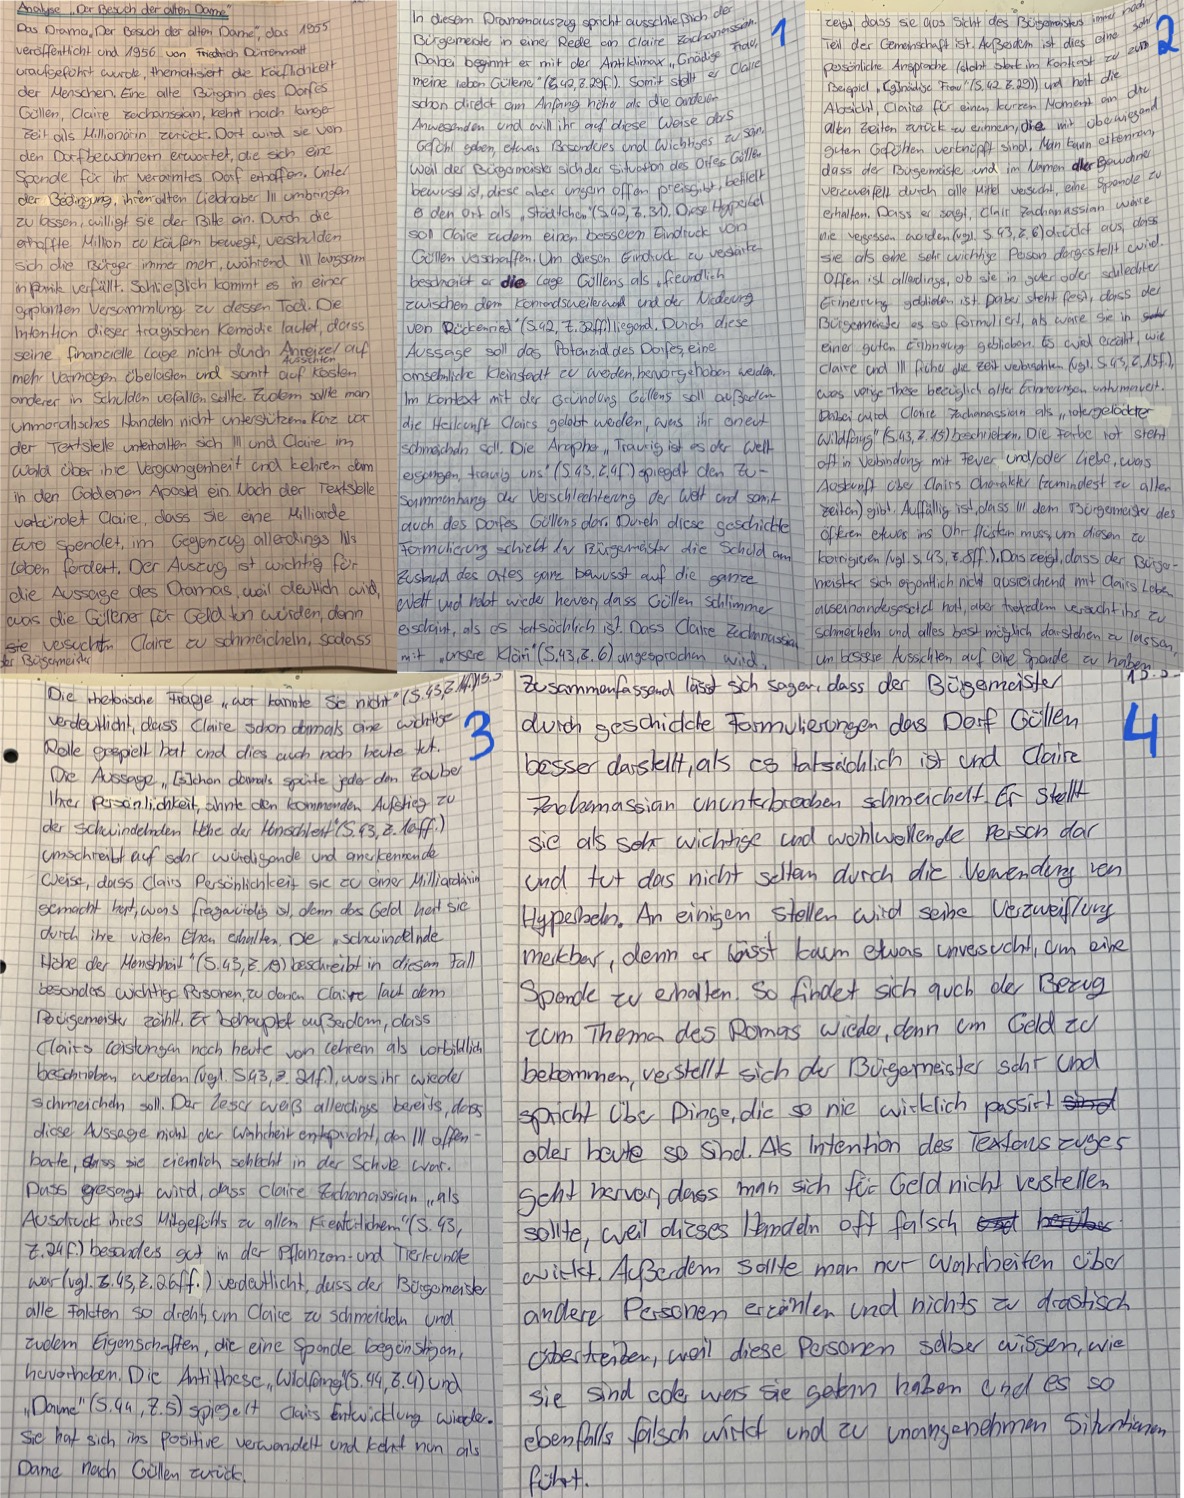 Analyse „Der Besuch der alten Dame"
Das Drama „Der Besuch der alten Dame", das 1955
veröffentlicht und 1956 von Friedrich Dürrenmatt
uraufgeführt wurde, thematisiert die Käuflichkeit
der Menschen. Eine alte Bürgerin des Dorfes
Güllen, Claire Zachanassian, kehrt nach langer
Zeit als Millionärin zurück. Dort wird sie von
den Dorfbewohnern erwartet, die sich eine
Spende für ihr verarmtes Dorf erhoffen. Unter
der Bedingung, ihren alten Liebhaber Ill umbringen
zu lassen, willigt sie der Bitte ein. Durch die
erhoffte Million zu Käufen bewegt, verschulden
sich die Bürger immer mehr, während Ill langsam
in Panik verfällt. Schließlich kommt es in einer
geplanten Versammlung zu dessen Tod. Die
Intention dieser tragischen Komödie lautet, dass
seine financielle Lage nicht durch Anreize/ auf
Aussichten
mehr Vermögen überlasten und somit auf Kosten
anderer in Schulden verfallen sollte. Zudem sollte man
unmoralisches Handeln nicht unterstützen. Kurz vor
der Textstelle unterhalten sich Ill und Claire im
Wald über ihre Vergangenheit und kehren dann
in den Goldenen Apostel ein. Nach der Textstelle
verkündet Claire, dass sie eine Milliarde
Euro spendet, im Gegenzug allerdings Ills
Leben fordert. Der Auszug ist wichtig für
die Aussage des Dramas, weil deutlich wird,
was die Güllener für Geld tun würden, denn
sie versuchen Claire zu schmeicheln, sodass
der Bürgermeister
1
In diesem Dramenauszug spricht ausschließlich der
Bürgermeister in einer Rede an Claire Zachanassian.
Dabei beginnt er mit der Antiklimax „Gnädige Frau,
meine lieben Güllener" (S.42, Z.29f). Somit stellt er Claire
schon direkt am Anfang höher als die anderen
Anwesenden und will ihr auf diese Weise das
Gefühl geben, etwas Besonderes und Wichtiges zu sein.
Weil der Bürgermeister sich der Situation des Ortes Güllen
bewusst ist, diese aber ungern offen preisgibt, betitelt
er den Ort als „Städtchen" (S.42, Z.31). Diese Hyperbel
soll Claire zudem einen besseren Eindruck von
Güllen verschaffen. Um diesen Eindruck zu verstärken
beschreibt er die Lage Güllens als „freundlich
zwischen dem Konradsweilerwald und der Niederung
von Pückenried" (S.42, Z.32ff) liegend. Durch diese
Aussage soll das Potenzial des Dorfes, eine
ansehnliche Kleinstadt zu werden, hervorgehoben werden.
Im Kontext mit der Gründung Güllens soll außerdem
die Herkunft Clairs gelobt werden, was ihr erneut
schmeicheln soll. Die Anapher „Traurig ist es der Welt
ergangen, traurig uns" (S.43, Z.4f) spiegelt den Zu-
sammenhang der Verschlechterung der Welt und somit
auch des Dorfes Güllens dar. Durch diese geschickte
Formulierung schiebt der Bürgermeister die Schuld am
Zustand des Ortes ganz bewusst auf die ganze
Welt und hebt wieder hervor, dass Güllen schlimmer
erscheint, als es tatsächlich ist. Dass Claire Zachanassian
mit „unsere Kläri" (S.43, Z.6) angesprochen wird,
2
zeigt dass sie aus Sicht des Bürgermeisters immer noch
Teil der Gemeinschaft ist. Außerdem ist dies eine sehr
persönliche Ansprache (steht stark im Kontrast zu zum
Beispiel „[g]nädige Frau" (S.42 Z.29)) und hat die
Absicht, Claire für einen kurzen Moment an die
alten Zeiten zurück zu erinnern, die mit überwiegend
guten Gefühlen verknüpft sind. Man kann erkennen,
dass der Bürgermeister und im Namen aller Bewohner
verzweifelt durch alle Mittel versucht, eine Spende zu
erhalten. Dass er sagt, Clair Zachanassian wäre
nie vergessen worden (vgl. S.43, Z.6) drückt aus, dass
sie als eine sehr wichtige Person dargestellt wird.
Offen ist allerdings, ob sie in guter oder schlechter
Erinnerung geblieben ist. Dabei steht fest, dass der
Bürgermeister es so formuliert, als wäre sie in
einer guten Erinnerung geblieben. Es wird erzählt, wie
Claire und Ill früher die Zeit verbrachten (vgl. S.43, Z.15f),
was vorige These bezüglich alter Erinnerungen untermauert.
Dabei wird Claire Zachanassian als „rotgelockter
Wildfang" (S.43, Z.15) beschrieben. Die Farbe rot steht
oft in Verbindung mit Feuer und/oder Liebe, was
Auskunft über Clairs Charakter (zumindest zu alten
Zeiten) gibt. Auffällig ist, dass Ill dem Bürgermeister des
öfteren etwas ins Ohr flüstern muss, um diesen zu
korrigieren (vgl. S.43, Z.5ff.). Das zeigt, dass der Bürger-
meister sich eigentlich nicht ausreichend mit Clairs Leben
auseinandergesetzt hat, aber trotzdem versucht ihr zu
schmeicheln und alles best möglich darstehen zu lassen,
um bessere Aussichten auf eine Spende zu haben.
3
Die rhetorische Frage „wer kannte Sie nicht" (S.43, Z.14)
verdeutlicht, dass Claire schon damals eine wichtige
Rolle gespielt hat und dies auch noch heute tut.
Die Aussage „[s]chon damals spürte jeder den Zauber
Ihrer Persönlichkeit, ahnte den kommenden Aufstieg zu
der schwindelnden Höhe der Menschheit" (S.43, Z.18ff.)
umschreibt auf sehr würdigende und anerkennende
Weise, dass Clairs Persönlichkeit sie zu einer Milliardärin
gemacht hat, was fragwürdig ist, denn das Geld hat sie
durch ihre vielen Ehen erhalten. Die „schwindelnde
Höhe der Menschheit" (S.43, Z.19) beschreibt in diesem Fall
besonders wichtige Personen, zu denen Claire laut dem
Bürgermeister zählt. Er behauptet außerdem, dass
Clairs Leistungen noch heute von Lehrern als vorbildlich
beschrieben werden (vgl. S.43, Z.21f.), was ihr wieder
schmeicheln soll. Der Leser weiß allerdings bereits, dass
diese Aussage nicht der Wahrheit entspricht, da Ill offen-
barte, dass sie ziemlich schlecht in der Schule war.
Dass gesagt wird, dass Claire Zachanassian „als
Ausdruck ihres Mitgefühls zu allem Kreatürlichem" (S.43,
Z.24f.) besonders gut in der Pflanzen- und Tierkunde
war (vgl. S.43, Z.26ff.) verdeutlicht, dass der Bürgermeister
alle Fakten so dreht, um Claire zu schmeicheln und
zudem Eigenschaften, die eine Spende begünstigen,
hervorheben. Die Antithese „Wildfang" (S.44, Z.4) und
„Dame" (S.44, Z.5) spiegelt Clairs Entwicklung wieder.
Sie hat sich ins Positive verwandelt und kehrt nun als
Dame nach Güllen zurück.
4
Zusammenfassend lässt sich sagen, dass der Bürgermeister
durch geschickte Formulierungen das Dorf Güllen
besser darstellt, als es tatsächlich ist und Claire
Zachanassian ununterbrochen schmeichelt. Er stellt
sie als sehr wichtige und wohlwollende Person dar
und tut das nicht selten durch die Verwendung von
Hyperbeln. An einigen Stellen wird seine Verzweiflung
merkbar, denn er lässt kaum etwas unversucht, um eine
Spende zu erhalten. So findet sich auch der Bezug
zum Thema des Romas wieder, denn um Geld zu
bekommen, verstellt sich der Bürgermeister sehr und
spricht über Dinge, die so nie wirklich passirt
oder heute so sind. Als Intention des Textauszuges
geht hervor, dass man sich für Geld nicht verstellen
sollte, weil dieses Handeln oft falsch
wirkt. Außerdem sollte man nur Wahrheiten über
andere Personen erzählen und nichts zu drastisch
übertreiben, weil diese Personen selber wissen, wie
sie sind oder was sie getan haben und es so
ebenfalls falsch wirkt und zu unangenehmen Situationen
führt.